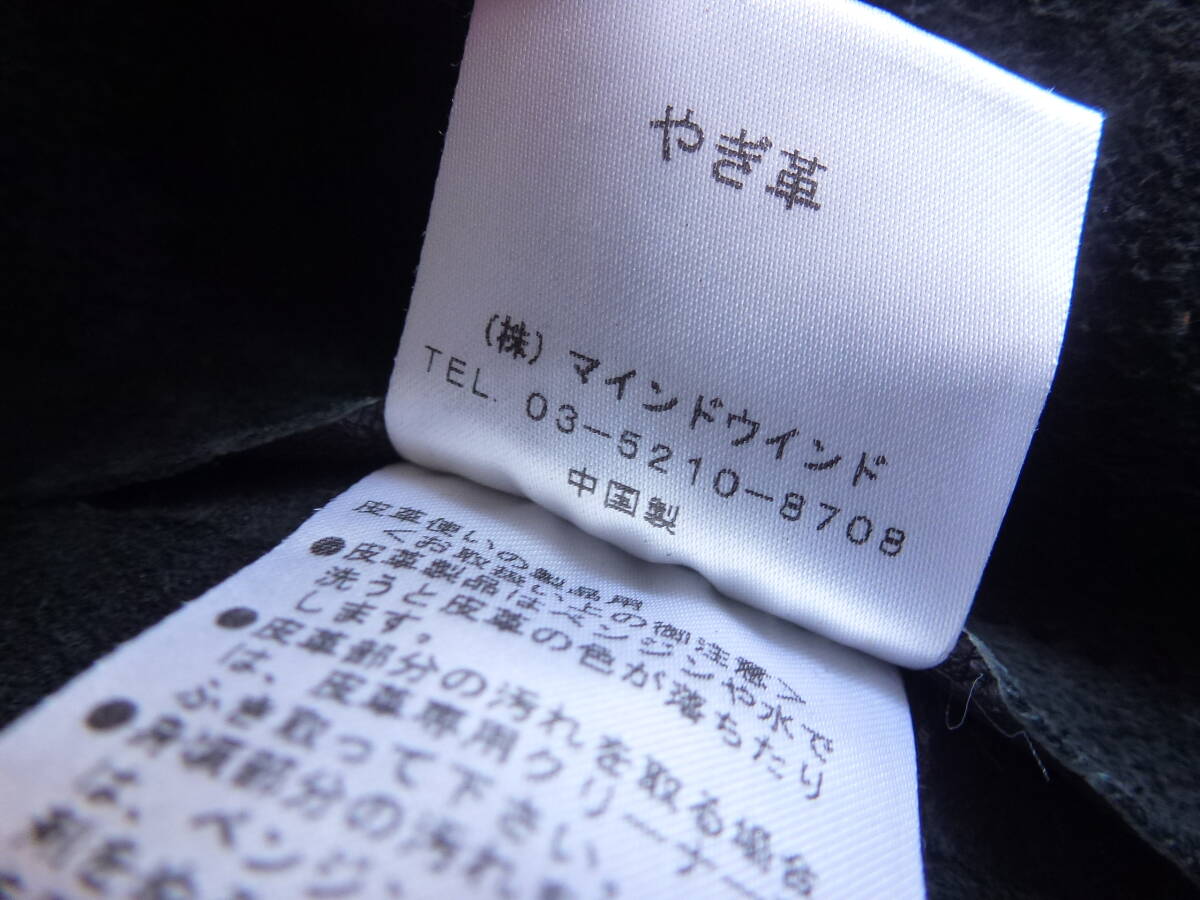 やぎ革
(株) マインドウインド
TEL. 03-5210-8708
中国製
皮革使いの製品用
<お取扱い上の御注意>
●皮革製品はベンジンや水で
洗うと皮革の色が落ちたり
します。
●皮革部分の汚れを取る場合
は、皮革専用クリーナー
ふき取って下さい、
●身頃部分の汚れ
は、ベンジ
剤を